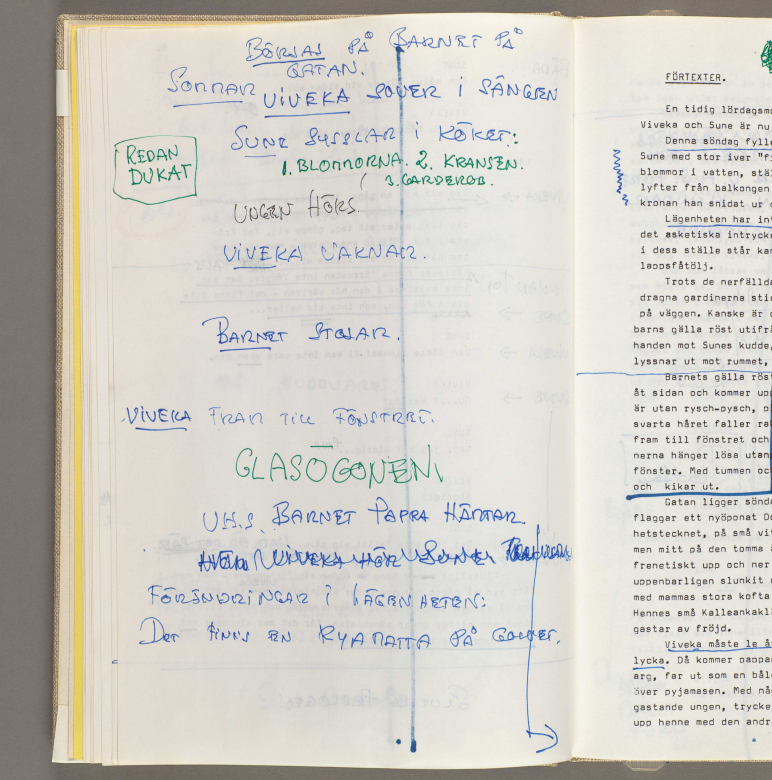 BÖRJAS PÅ BARNET PÅ
GATAN.
SOMMAR
VIVEKA SOVER I SÄNGEN
SUNE SYSSLAR I KÖKET:
REDAN
DUKAT
1. BLOMMORNA. 2. KRANSEN.
3. GARDEROB.
UNGEN HÖRS.
VIVEKA VAKNAR.
BARNET STOJAR.
VIVEKA FRAM TILL FÖNSTRET.
GLASÖGONEN!
BARNET PAPPA HÄMTAR.
VIVEKA HÖR SUNE
FÖRÄNDRINGAR I LÄGENHETEN:
DET FINNS EN RYAMATTA PÅ GOLVET.
FÖRTEXTER.
En tidig lördagsmo
Viveka och Sune är nu
Denna söndag fylle
Sune med stor iver "fi
blommor i vatten, stäl
lyfter från balkongen
kronan han snidat ur
Lägenheten har int
det asketiska intrycke
i dess ställe står kar
lappsfåtölj.
Trots de nerfällda
dragna gardinerna stic
på väggen. Kanske är
barns gälla röst utifrå
handen mot Sunes kudde,
lyssnar ut mot rummet,
Barnets gälla röst
åt sidan och kommer upp
är utan rysch-pysch, p
svarta håret faller ra
fram till fönstret och
nerna hänger lösa utan
fönster. Med tummen och
och kikar ut.
Gatan ligger sönda
flaggar ett nyöponat Do
hetstecknet, på små vit
men mitt på den tomma
frenetiskt upp och ner
uppenbarligen slunkit
med mammas stora kofta
Hennes små Kalleankakl
gastar av fröjd.
Viveka måste le å
lycka. Då kommer pappan
arg, far ut som en bål
över pyjamasen. Med nå
gastande ungen, trycke
upp henne med den andr